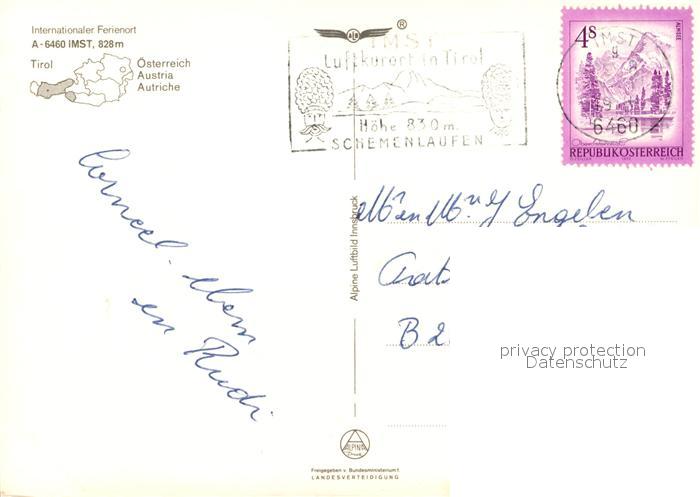 Internationaler Ferienort
A-6460 IMST, 828m
Tirol
Österreich
Austria
Autriche
®
IMST
Luftkurort in Tirol
Höhe 830m.
SCHEMENLAUFEN
4S
ALMSEE
IMST
6460
REPUBLIK ÖSTERREICH
Corneel. Mem
en Rudi
Alpine Luftbild Innsbruck
Engelen
B2
privacy protection
Datenschutz
ALPINE
Druck
Freigegeben v. Bundesministerium f.
LANDESVERTEIDIGUNG